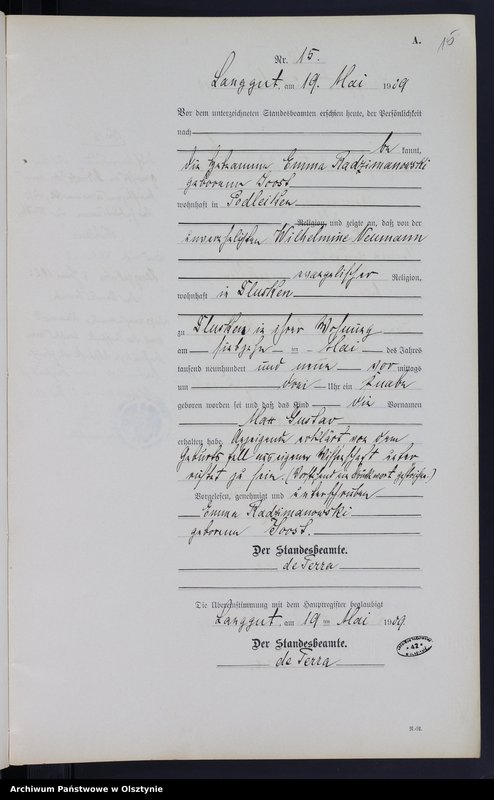 A.
15
Nr. 15.
Langgut, am 19. Mai 1909
Vor dem unterzeichneten Standesbeamten erschien heute, der Persönlichkeit
nach
be kannt,
die Hebamme Emma Radzimanowski
geborene Joost
wohnhaft in Podleiken
Religion, und zeigte an, daß von der
unverehelichten Wilhelmine Neumann
evangelischer Religion,
wohnhaft in Plusken
zu Plusken in ihrer Wohnung
am siebzehn ten Mai des Jahres
tausend neunhundert und neun vor mittags
um drei Uhr ein Knabe
geboren worden sei und daß das Kind die Vornamen
Max Gustav
erhalten habe. Anzeigende erklärt von dem
Geburtsfall aus eigener Wissenschaft unter
richtet zu sein. (Vorstehend ein Druckwort gestrichen.)
Vorgelesen, genehmigt und unterschrieben
Emma Radzimanowski
geborene Joost.
Der Standesbeamte.
de Terra
Die Übereinstimmung mit dem Hauptregister beglaubigt
Langgut, am 19 ten Mai 1909
Der Standesbeamte.
de Terra
42
Archiwum Państwowe w Olsztynie